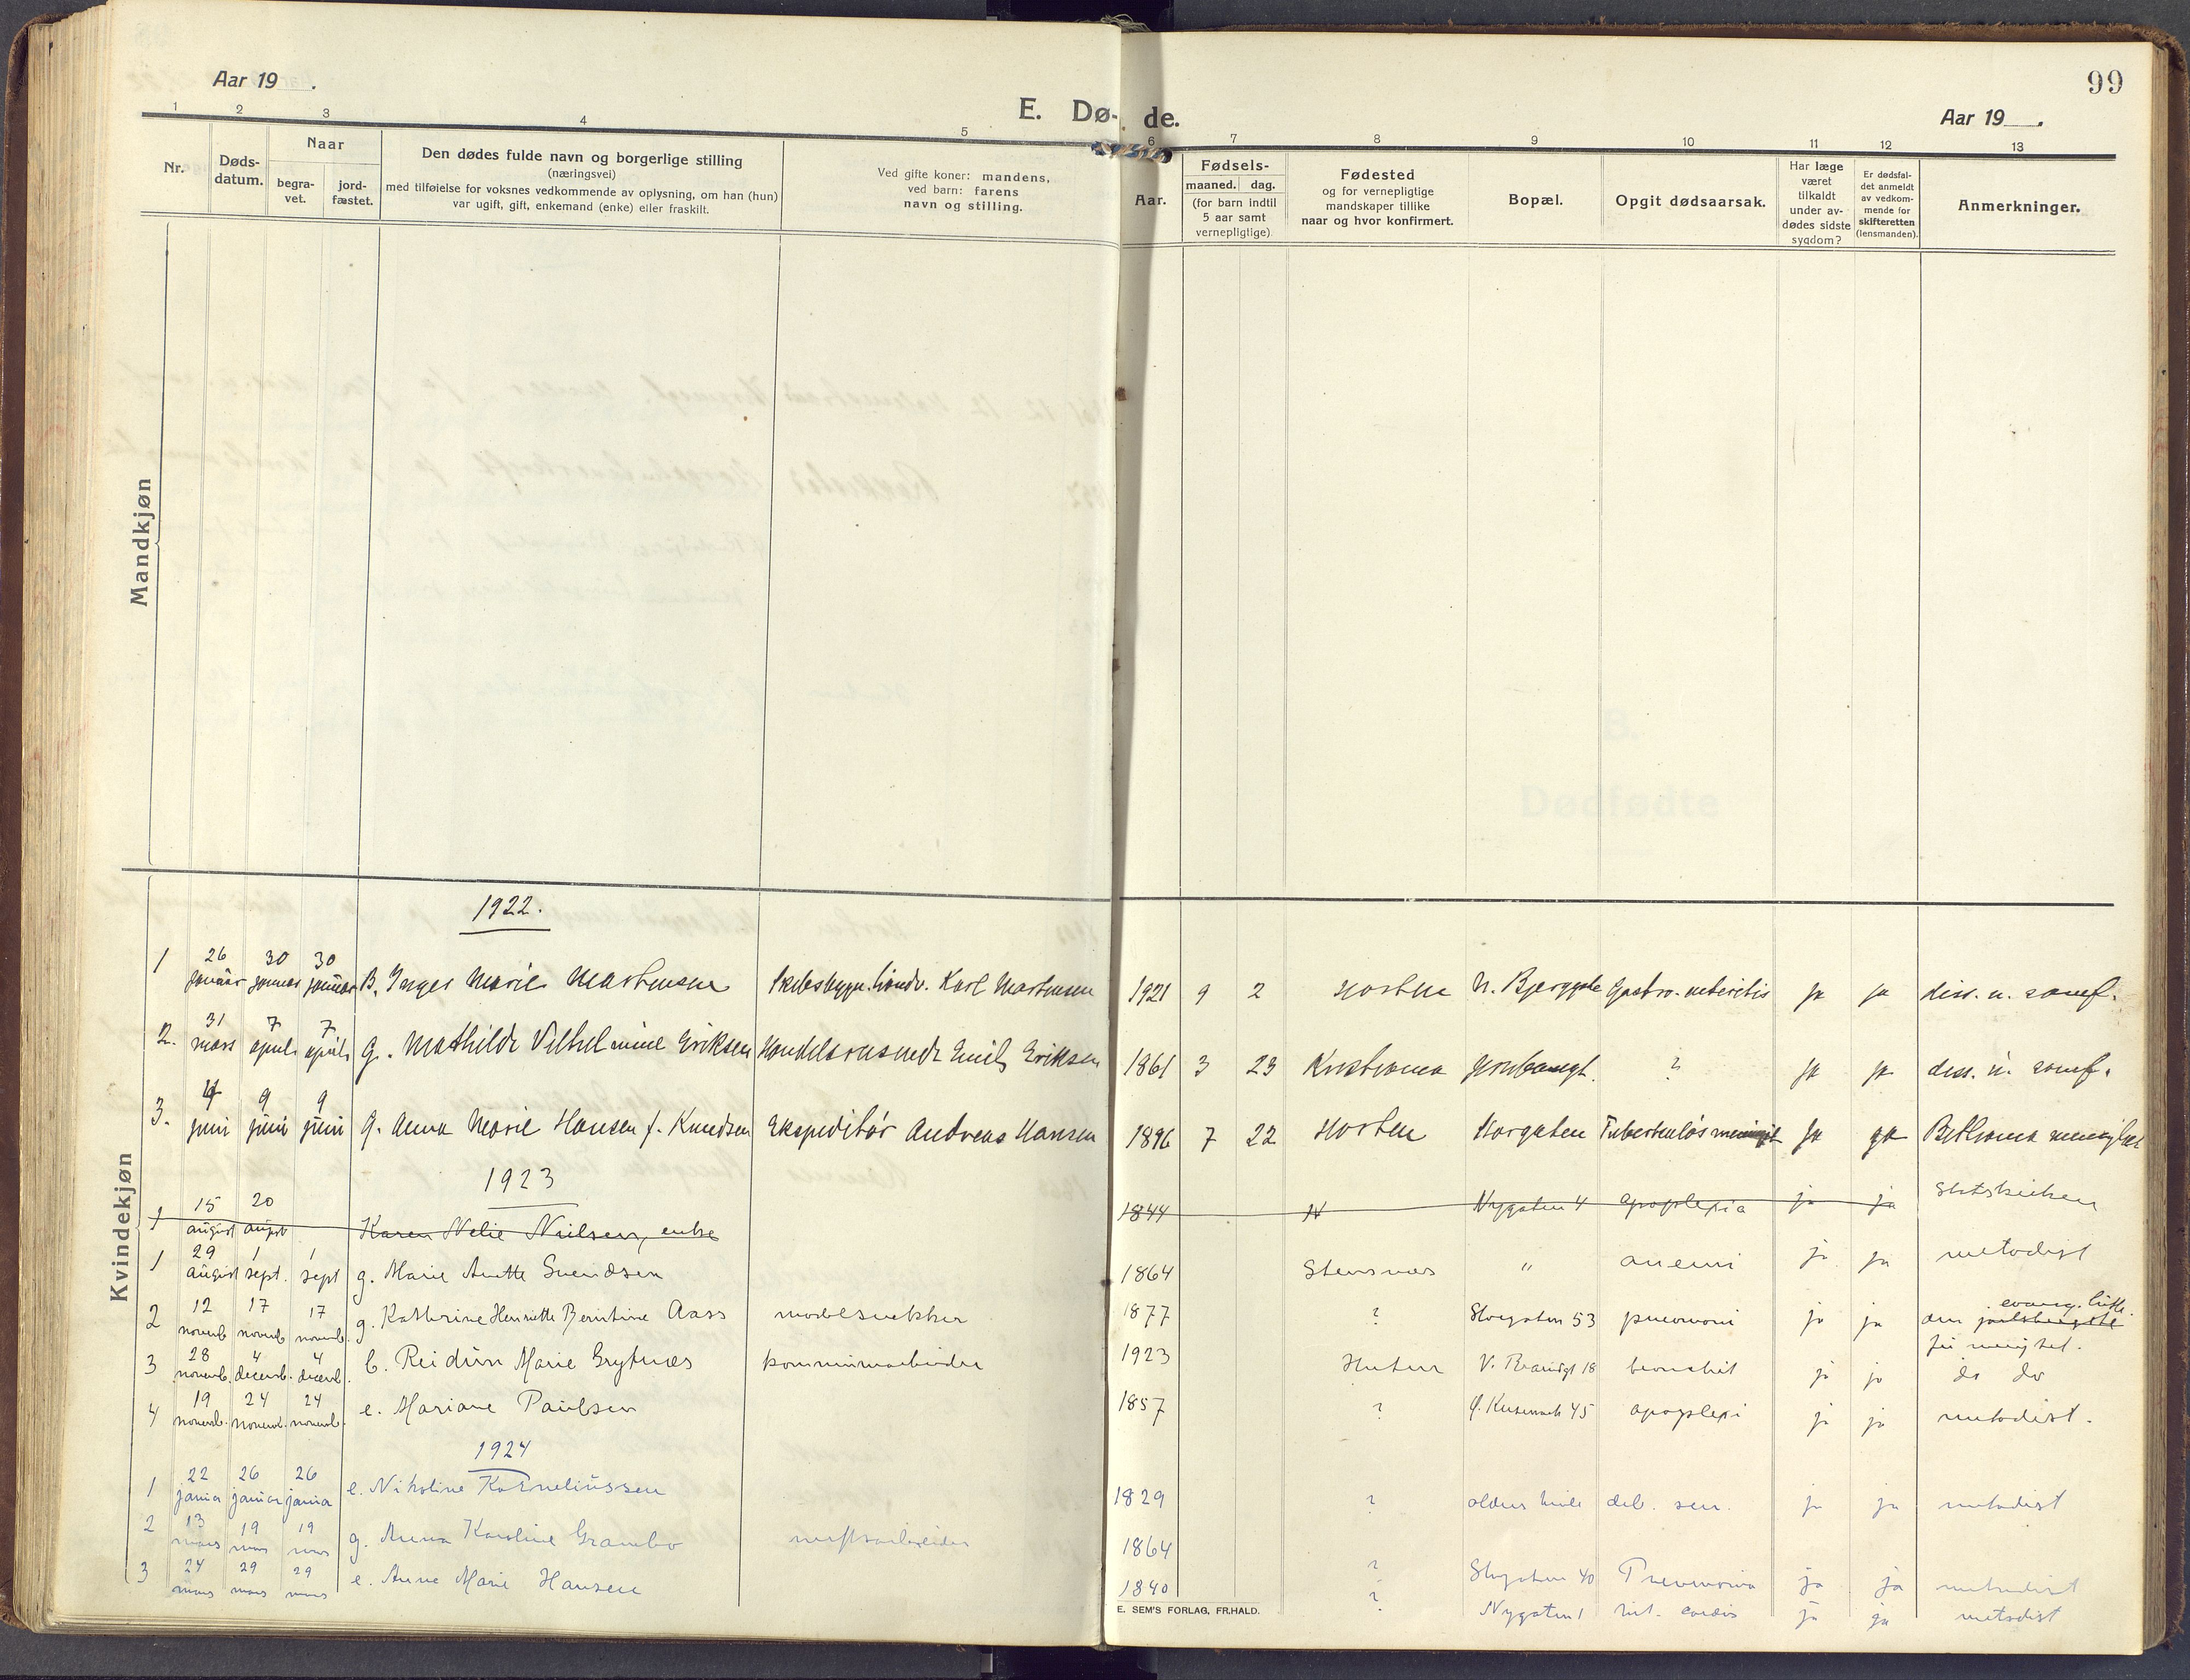 99
Aar 19 .
E. Dø- de.
Aar 19 .
1 2 3 4 5 6 7 8 9 10 11 12 13
Nr.
Døds-
datum.
Naar
begra-
vet.
jord-
fæstet.
Den dødes fulde navn og borgerlige stilling
(næringsvei)
med tilføielse for voksnes vedkommende av oplysning, om han (hun)
var ugift, gift, enkemand (enke) eller fraskilt.
Ved gifte koner: mandens,
ved barn: farens
navn og stilling.
Aar.
Fødsels-
maaned. dag.
(for barn indtil
5 aar samt
vernepligtige)
Fødested
og for vernepligtige
mandskaper tillike
naar og hvor konfirmert.
Bopæl.
Opgit dødsaarsak.
Har læge
været
tilkaldt
under av-
dødes sidste
sygdom?
Er dødsfal-
det anmeldt
av vedkom-
mende for
skifteretten
(lensmanden).
Anmerkninger.
Mandkjøn
Dødfødte
Kvindekjøn
1922.
1 26 januar 30 januar 30 januar B. Inger Marie Martensen Karl Martensen 1921 9 2 Horten ja ja diss. u. samf.
2. 31 mars 7 april 7 april g. Mathilde Vilhelmine Eriksen Handelsreisende Emil Eriksen 1861 3 23 Kristiania ? ja ja diss. u. samf.
3. 4 juni 9 juni 9 juni g. Anna Marie Hansen f. Knudsen Ekspeditør Andreas Hansen 1896 7 22 Horten Storgaten Tuberkuløs meningit ja ja Bethania menighet
1923
1 15 august 20 august Karen Nelie Nielsen, enke 1844 H Nygaten 4 apoplexia ja ja Statskirken
1 29 august 1 sept. 1 sept g. Marie Anette Svendsen 1864 Stensnæs " anemi ja ja metodist
2 12 novemb 17 novemb 17 novemb. g. Kathrine Henriette Berntine Aass modelsnekker 1877 ? Storgaten 53 pneumoni ja ja den evang. luth.
fri menighet.
3 28 novemb. 4 decemb. 4 decemb. b. Reidun Marie Grytnæs kommunearbeider 1923 Horten 18 bronchit ja ja do do
4 19 novemb. 24 novemb. 24 novemb. e. Mariane Paulsen 1857 ? 45 apoplexi ja ja metodist.
1924
1 22 januar 26 januar 26 januar e. Nikoline Korneliussen 1829 ? deb. sen. ja ja metodist
2 13 mars 19 mars 19 mars g. Anna Karoline Grambo verftsarbeider 1864 ? Storgaten 40 Pneumonia ja ja metodist
3 24 mars 29 mars 29 mars e. Anne Marie Hansen 1840 ? Nygaten 1 cordis ja ja metodist
E. SEM'S FORLAG, FR.HALD.